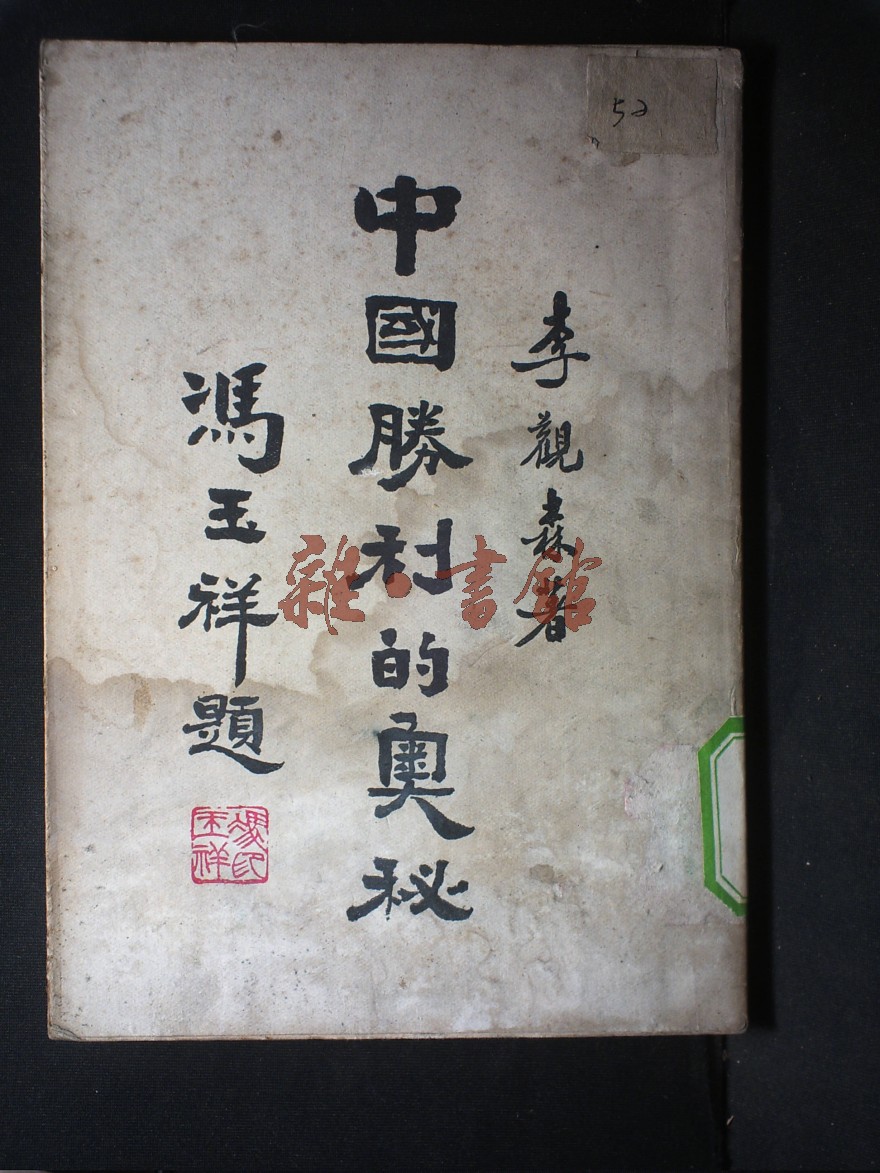 52
李觀森著
中國勝利的奧秘
馮玉祥題
馮印
玉祥
雜·書館